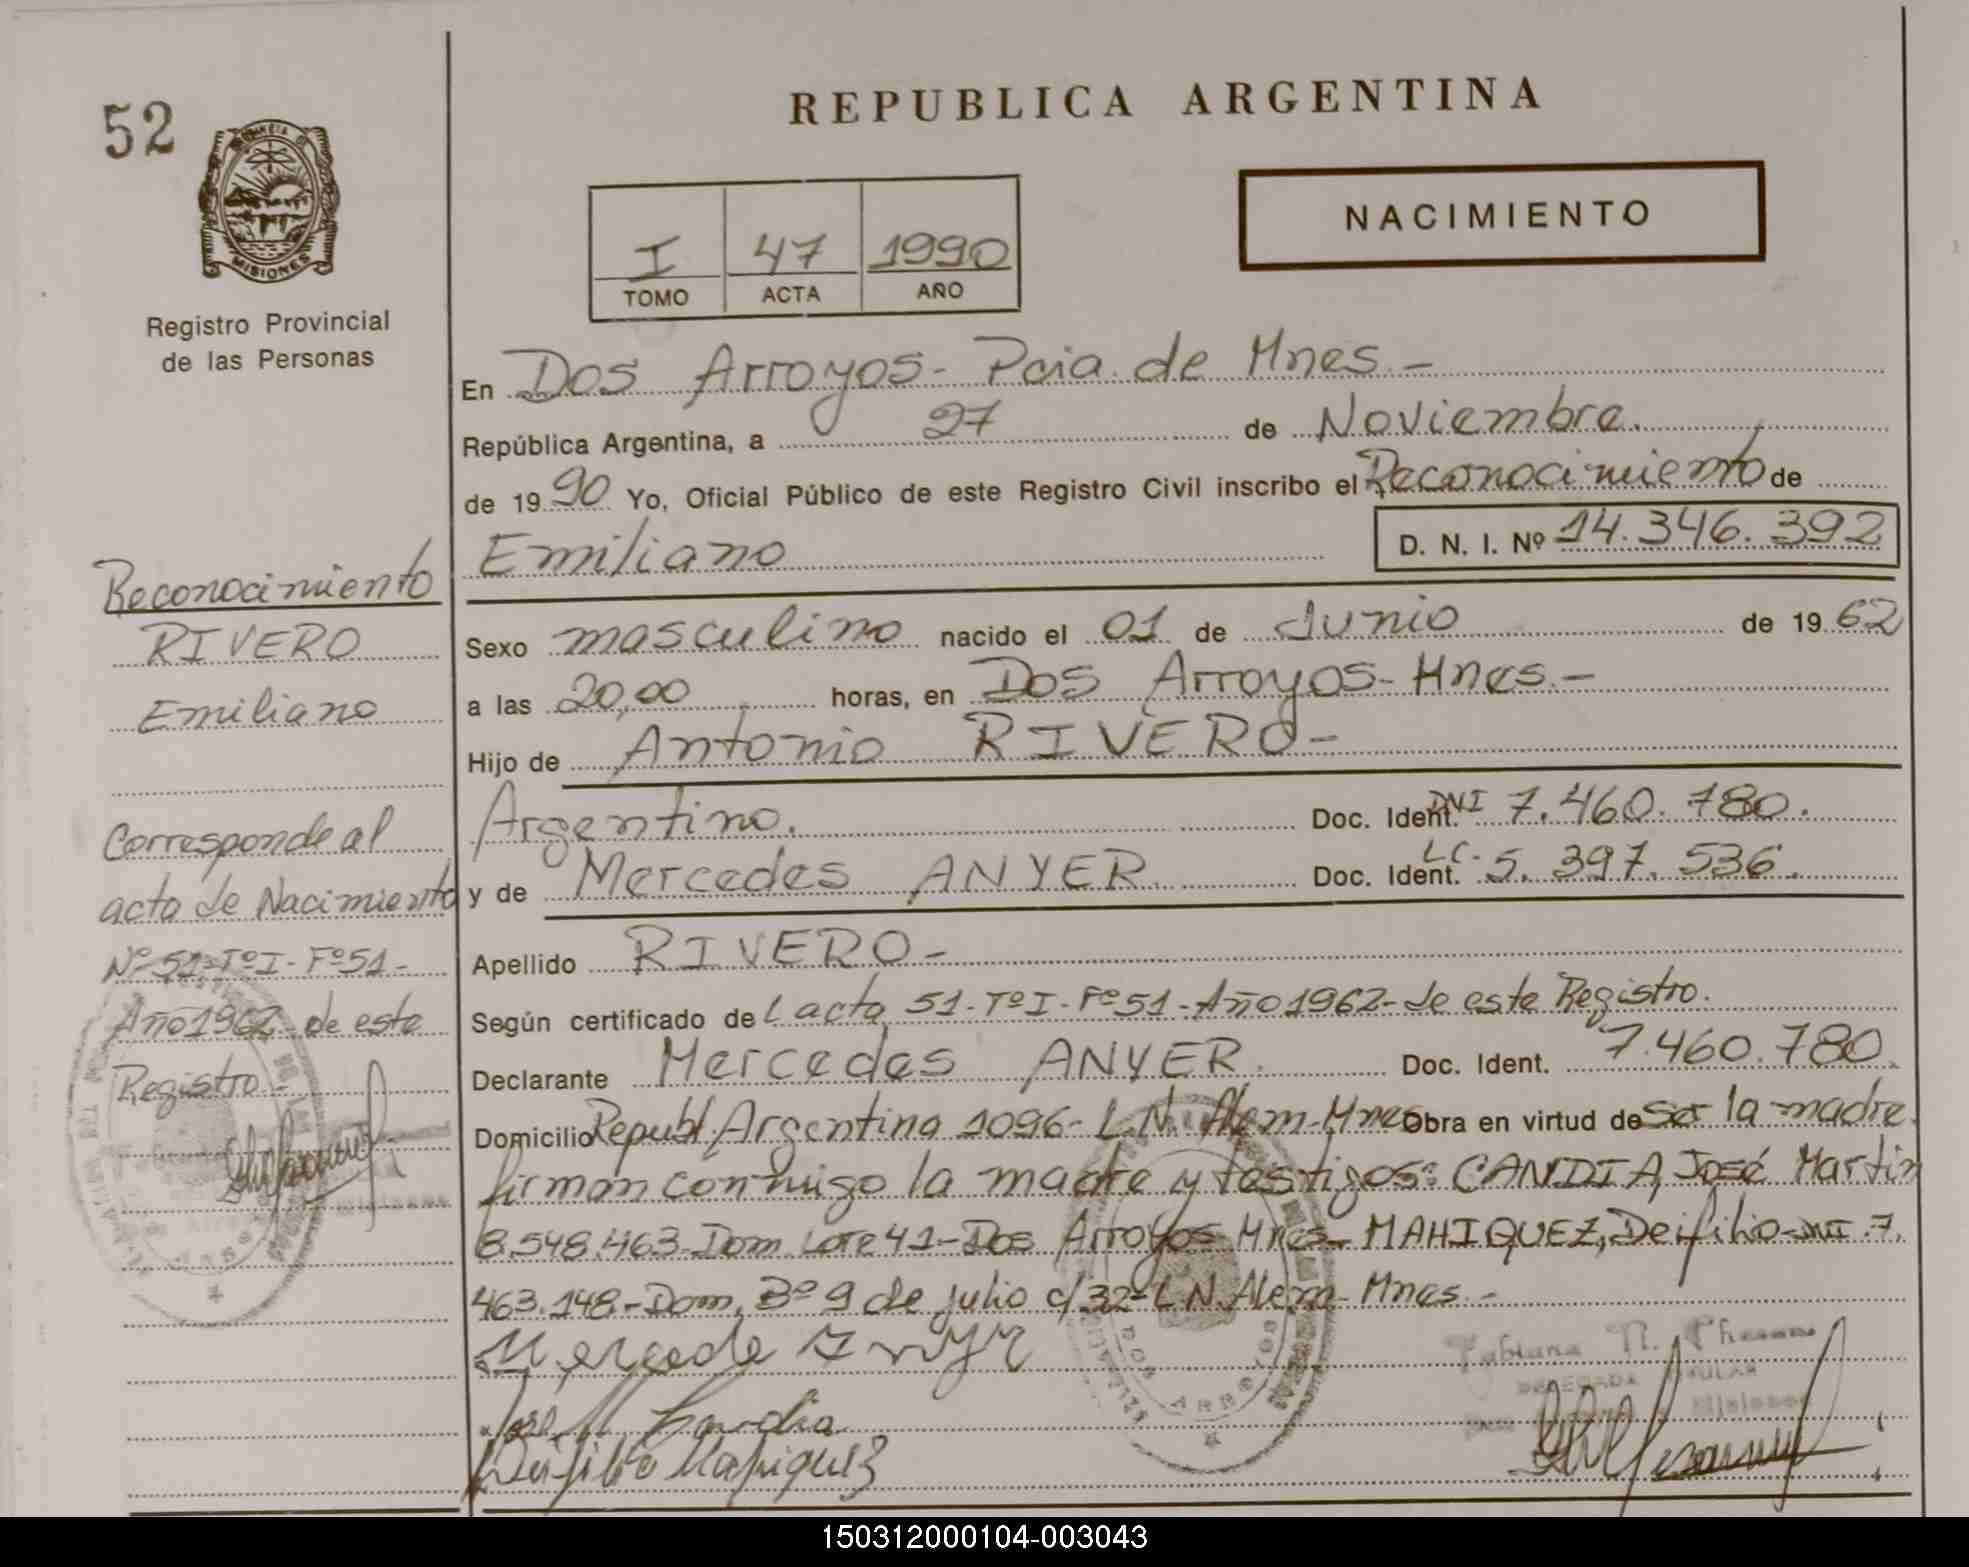 52
MISIONES
Registro Provincial
de las Personas
REPUBLICA ARGENTINA
NACIMIENTO
I 47 1990
TOMO ACTA AÑO
En Dos Arroyos - Pcia. de Mnes. -
República Argentina, a 27 de Noviembre.
de 1990 Yo, Oficial Público de este Registro Civil inscribo el Reconocimiento de
Emiliano D. N. I. Nº 14.346.392
Sexo masculino nacido el 01 de Junio de 1962
a las 20,00 horas, en Dos Arroyos - Mnes. -
Hijo de Antonio RIVERO -
Argentino. Doc. Ident. DNI 7.460.780.
y de Mercedes ANYER. Doc. Ident. LC. 5.397.536.
Apellido RIVERO -
Según certificado del acta 51 - Tº I - Fº 51 - Año 1962 - de este Registro.
Declarante Mercedes ANYER. Doc. Ident. 7.460.780.
Domicilio Republ. Argentina 1096 - L.N. Alem - Mnes Obra en virtud de ser la madre
firman conmigo la madre y testigos: CANDIA, José Martin
8.548.463 - Dom. Lote 41 - Dos Arroyos Mnes - MAHIQUEZ, Deifilio - MI. 7.
463.148 - Dom. Bº 9 de julio c/32 - L.N. Alem - Mnes. -
Reconocimiento
RIVERO
Emiliano
Corresponde al
acta de Nacimiento
Nº 51 - Tº I - Fº 51 -
Año 1962 - de este
Registro. -
DOS ARROYOS
150312000104-003043